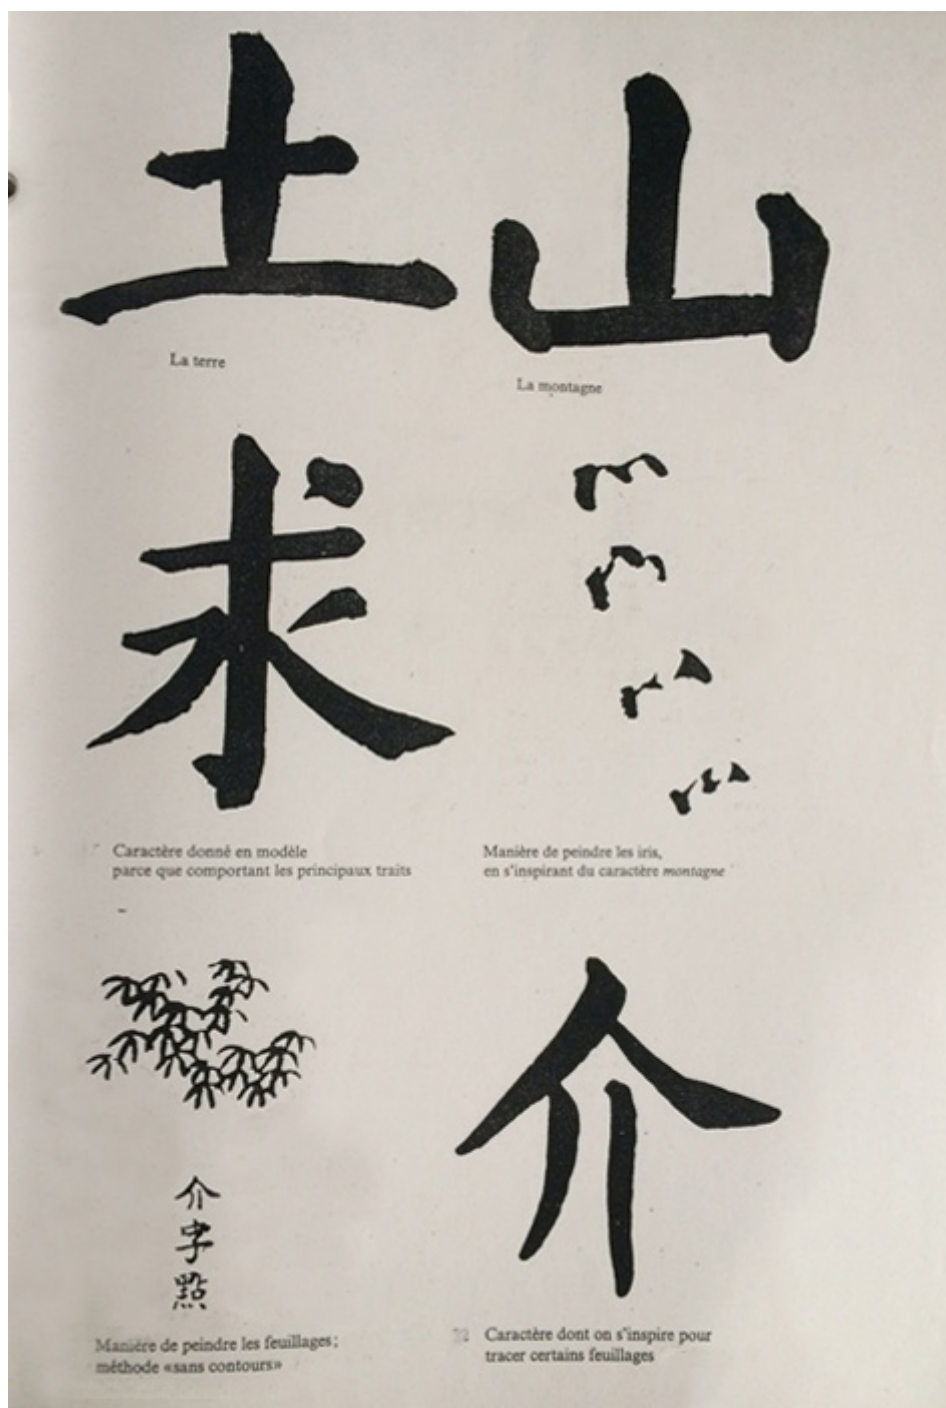 土
山
La terre
La montagne
求
Caractère donné en modèle
parce que comportant les principaux traits
Manière de peindre les iris,
en s'inspirant du caractère montagne
介
字
點
Manière de peindre les feuillages;
méthode «sans contours»
介
Caractère dont on s'inspire pour
tracer certains feuillages